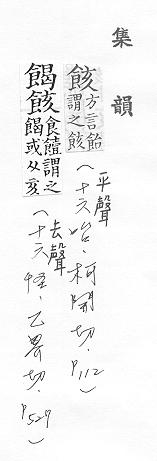 集韻
䬵方言飴
謂之䬵
(平聲
十六咍、柯開切、P112)
餲䬵食饐謂之
餲或从亥
(去聲
十六怪、乙界切、P527)